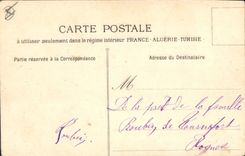 CARTE POSTALE
à utiliser seulement dans le régime intérieur FRANCE - ALGÉRIE - TUNISIE
Partie réservée à la Correspondance
Adresse du Destinataire
M
De la part de la famille
Roubin de